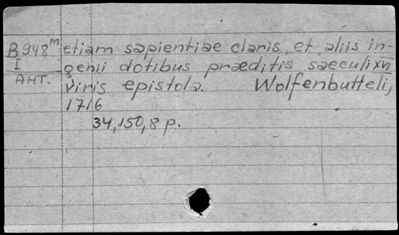 B948ᴹ etiam sapientiae claris, et aliis in-
I genii dotibus præditis saeculi xvi
АНТ. viris epistola. Wolfenbutteli,
1716
34, 150, 8 p.